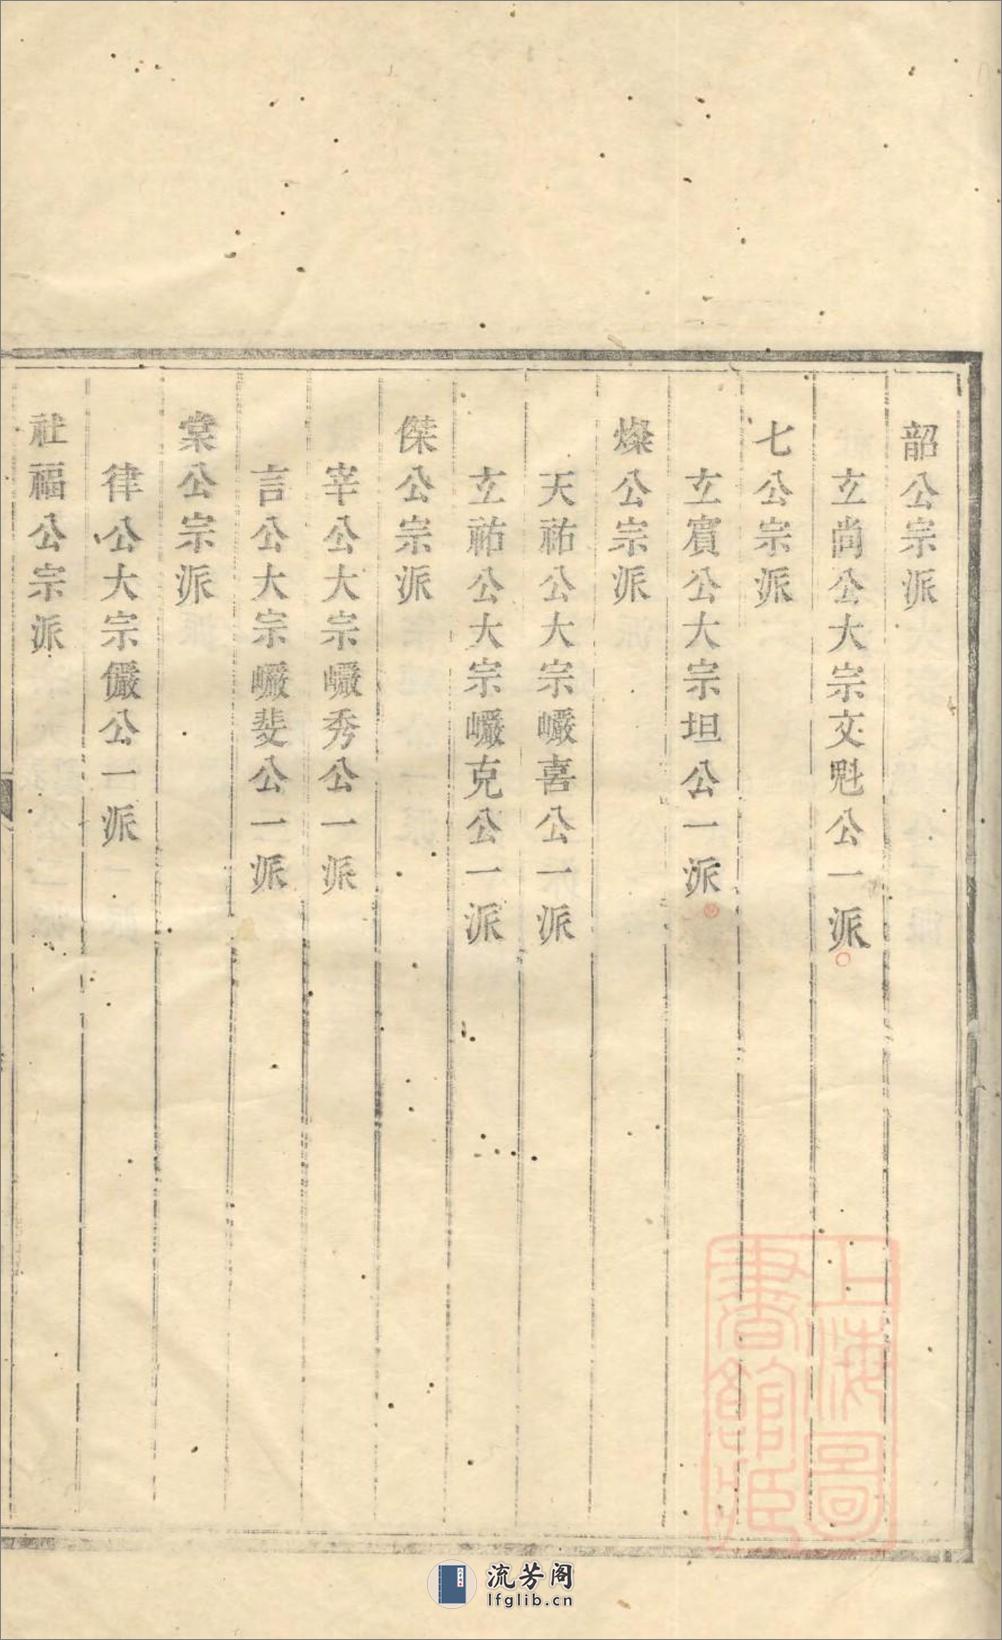 韶公宗派
玄尚公大宗文魁公一派
七公宗派
玄賓公大宗坦公一派
燦公宗派
天祐公大宗巘喜公一派
玄祐公大宗巘克公一派
傑公宗派
宰公大宗巘秀公一派
言公大宗巘斐公一派
棠公宗派
律公大宗儼公一派
社福公宗派
上海圖
書館藏
流芳阁
lfglib.cn